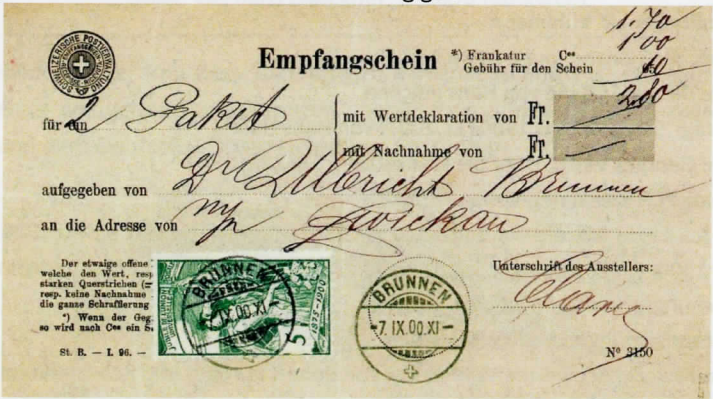 1.70
1 00
10
2.80
SCHWEIZERISCHE POSTVERWALTUNG
Empfangschein
*) Frankatur Cᵉˢ
Gebühr für den Schein
für ein 2 Paket
mit Wertdeklaration von Fr.
mit Nachnahme von Fr.
aufgegeben von Dr Ullbricht Brunnen
an die Adresse von Zwickau
Der etwaige offene
welche den Wert, resp
starken Querstrichen (=
resp. keine Nachnahme
die ganze Schraffierung
*) Wenn der Geg
so wird nach Cᵉˢ ein S
St. B. — I. 96. —
BRUNNEN
1875-1900
5
BRUNNEN
-7.IX.00.XI-
Unterschrift des Ausstellers:
Nº 3150